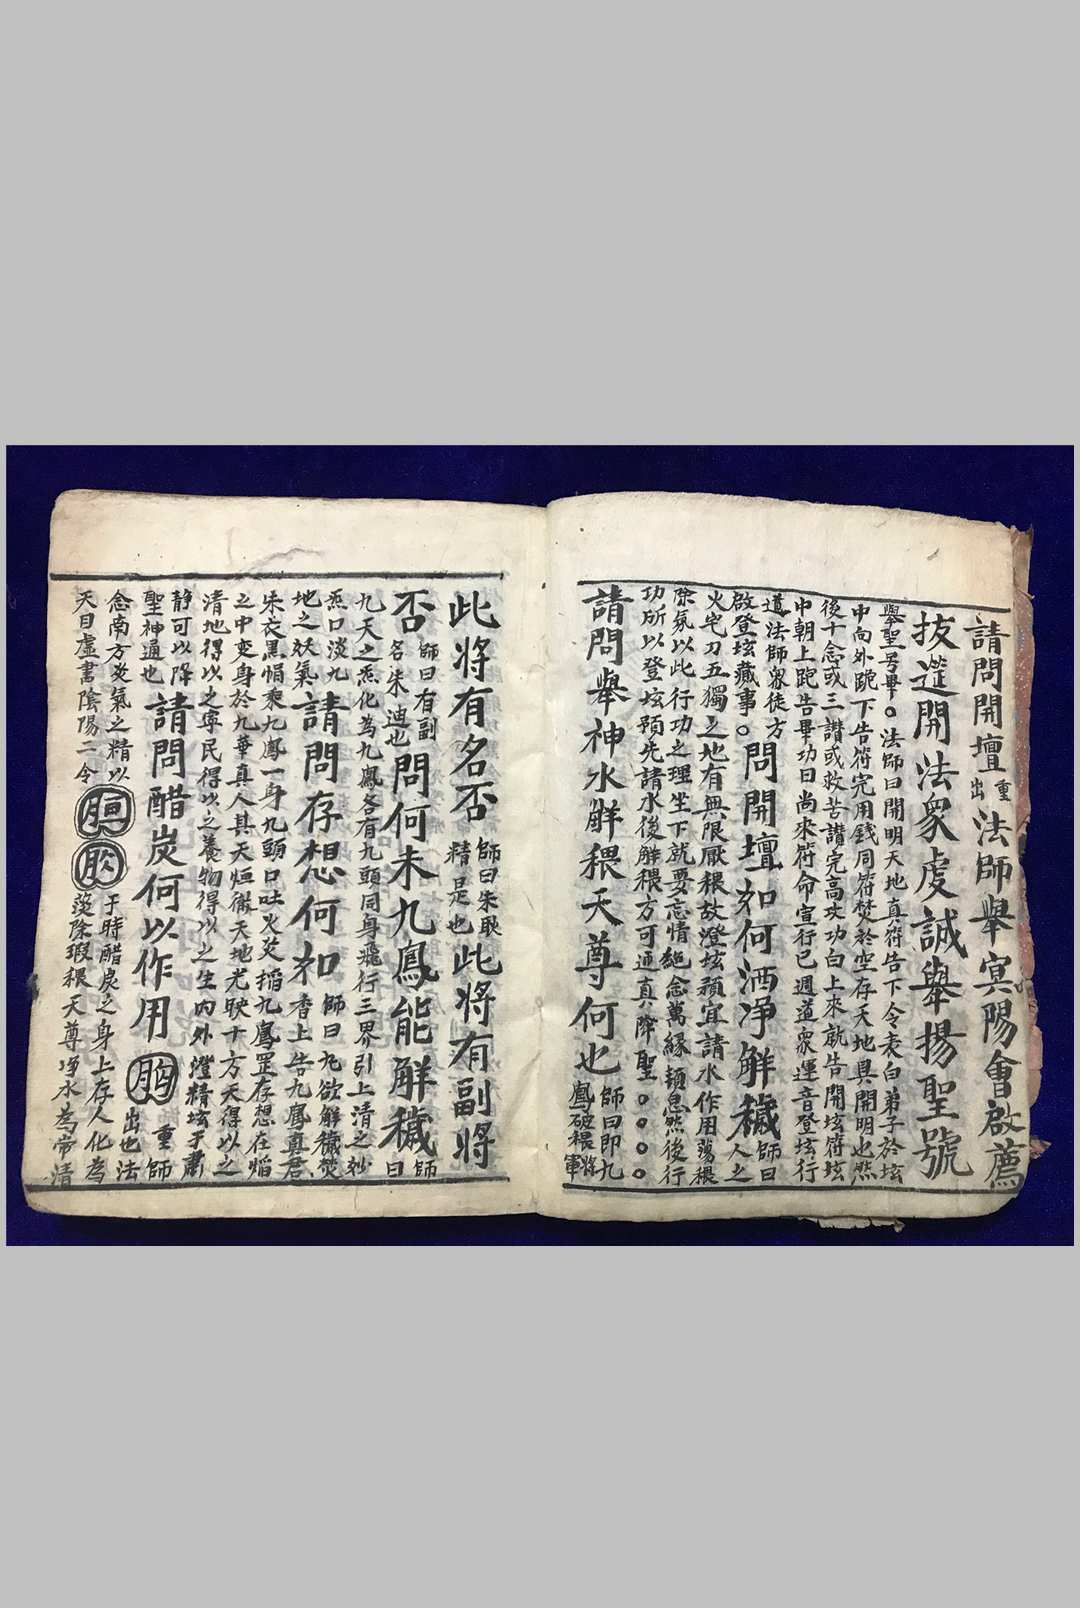 請問開壇出重法師舉冥陽會啟薦
拔筵開法眾虔誠舉揚聖號
舉聖号畢。法師曰開明天地真符告下令表白弟子於坛
中向外跪下告符完用錢同符焚於空存天地具開明也然
後十念或三讚或救苦讚完高功白上來就告開坛符坛
中朝上跪告畢功曰尚來符命宣行已週道眾運音登坛行
道法師眾徒方
啟登坛藏事。問開壇如何洒净解穢師曰人之
火宅刀五獨之地有無限厭穢故澄坛須宜請水作用蕩穢
除氛以此行功之理坐下就要忘情絕念萬緣頓息然後行
功所以登坛預先請水後解穢方可通真降聖。。。。
請問舉神水解穢天尊何也師曰即九鳳破穢將軍
此將有名否師曰朱耿精是也此將有副將
否師曰有副名朱迪也問何未九鳳能解穢師曰
九天之炁化為九鳳各有九頭同身飛行三界引上清之玅
炁口淡九
地之妖氣請問存想何如師曰九欲解穢焚香上告九鳳真君
朱衣黑帽乘九鳳一身九頭口吐火炎稻九鳳罡存想在焰
之中变身於九華真人其天烜徹天地光映十方天得以之
清地得以之寧民得以之養物得以之生内外澄精坛于肅
静可以降
聖神通也請問醋炭何以作用重出也師法
念南方炎氣之精以
天目虛書陰陽二令于時醋炭之身上存人化為
湌除瑕穢天尊净水為常清